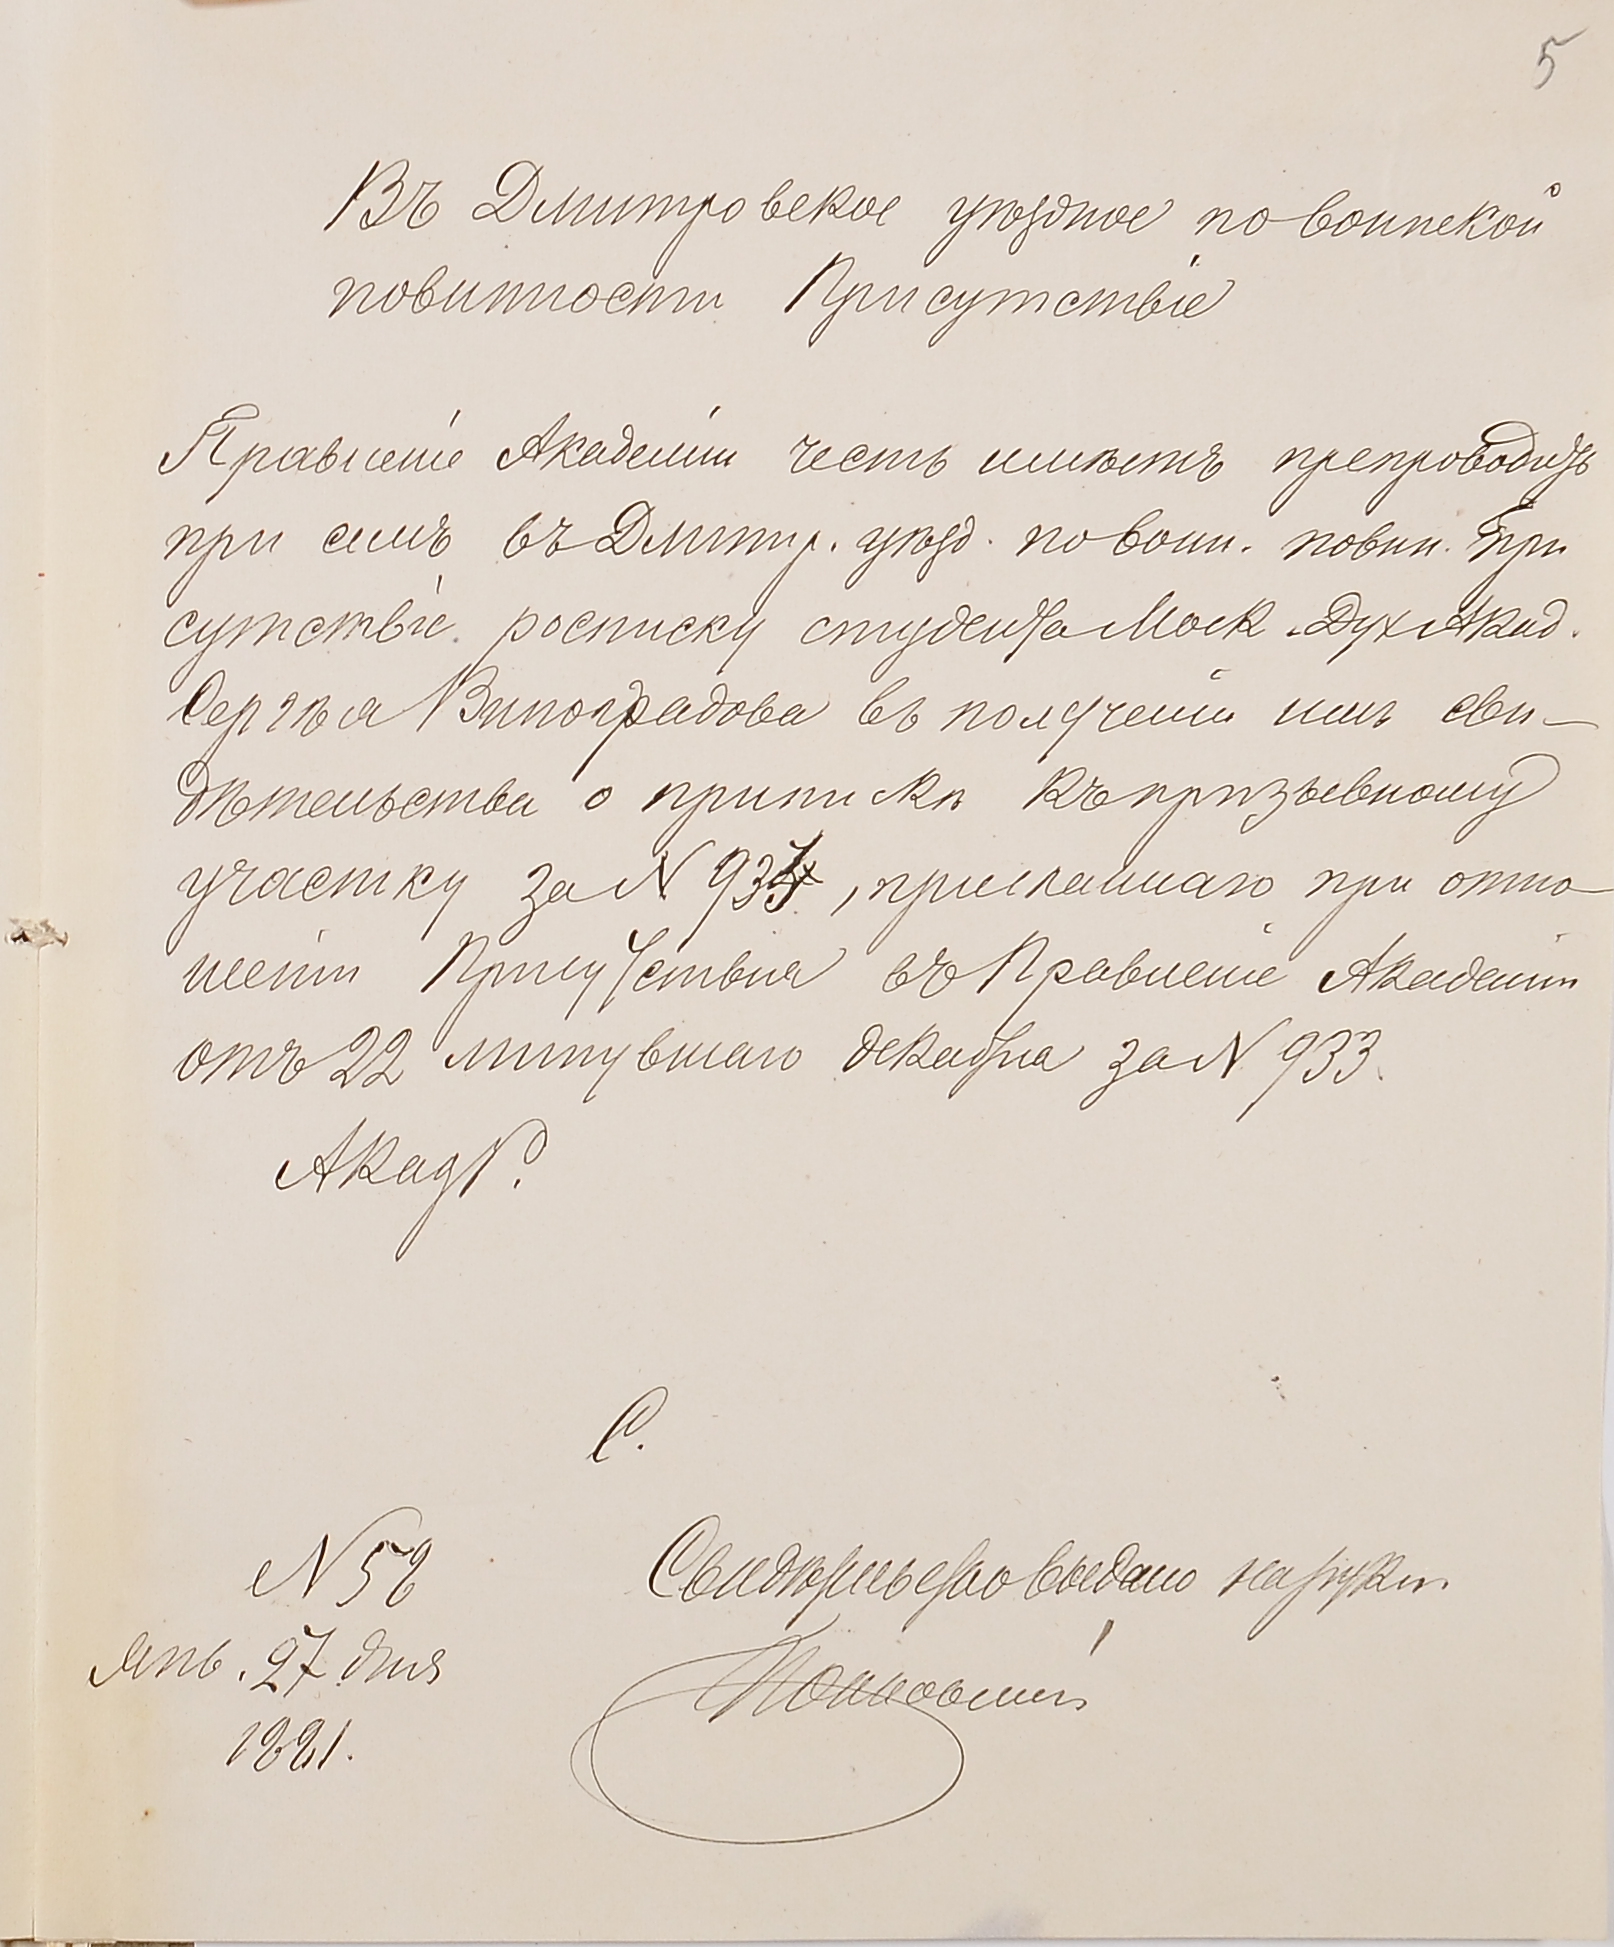 5
Въ Дмитровское уѣздное по воинской
повинности Присутствіе
Правленіе Академіи честь имѣетъ препроводить
при семъ въ Дмитр. уѣзд. по воин. повин. При
сутствіе росписку студента Моск. Дух Акад.
Сергѣя Виноградова въ полученіи имъ сви-
дѣтельства о припискѣ къ призывному
участку за N 934, присланнаго при отно-
шеніи Присутствія въ Правленіе Академіи
отъ 22 минувшаго декабря за N 933.
Акад Р.
С.
N 58
янв. 27 дня
1881.
Свидѣтельство выдано на руки.